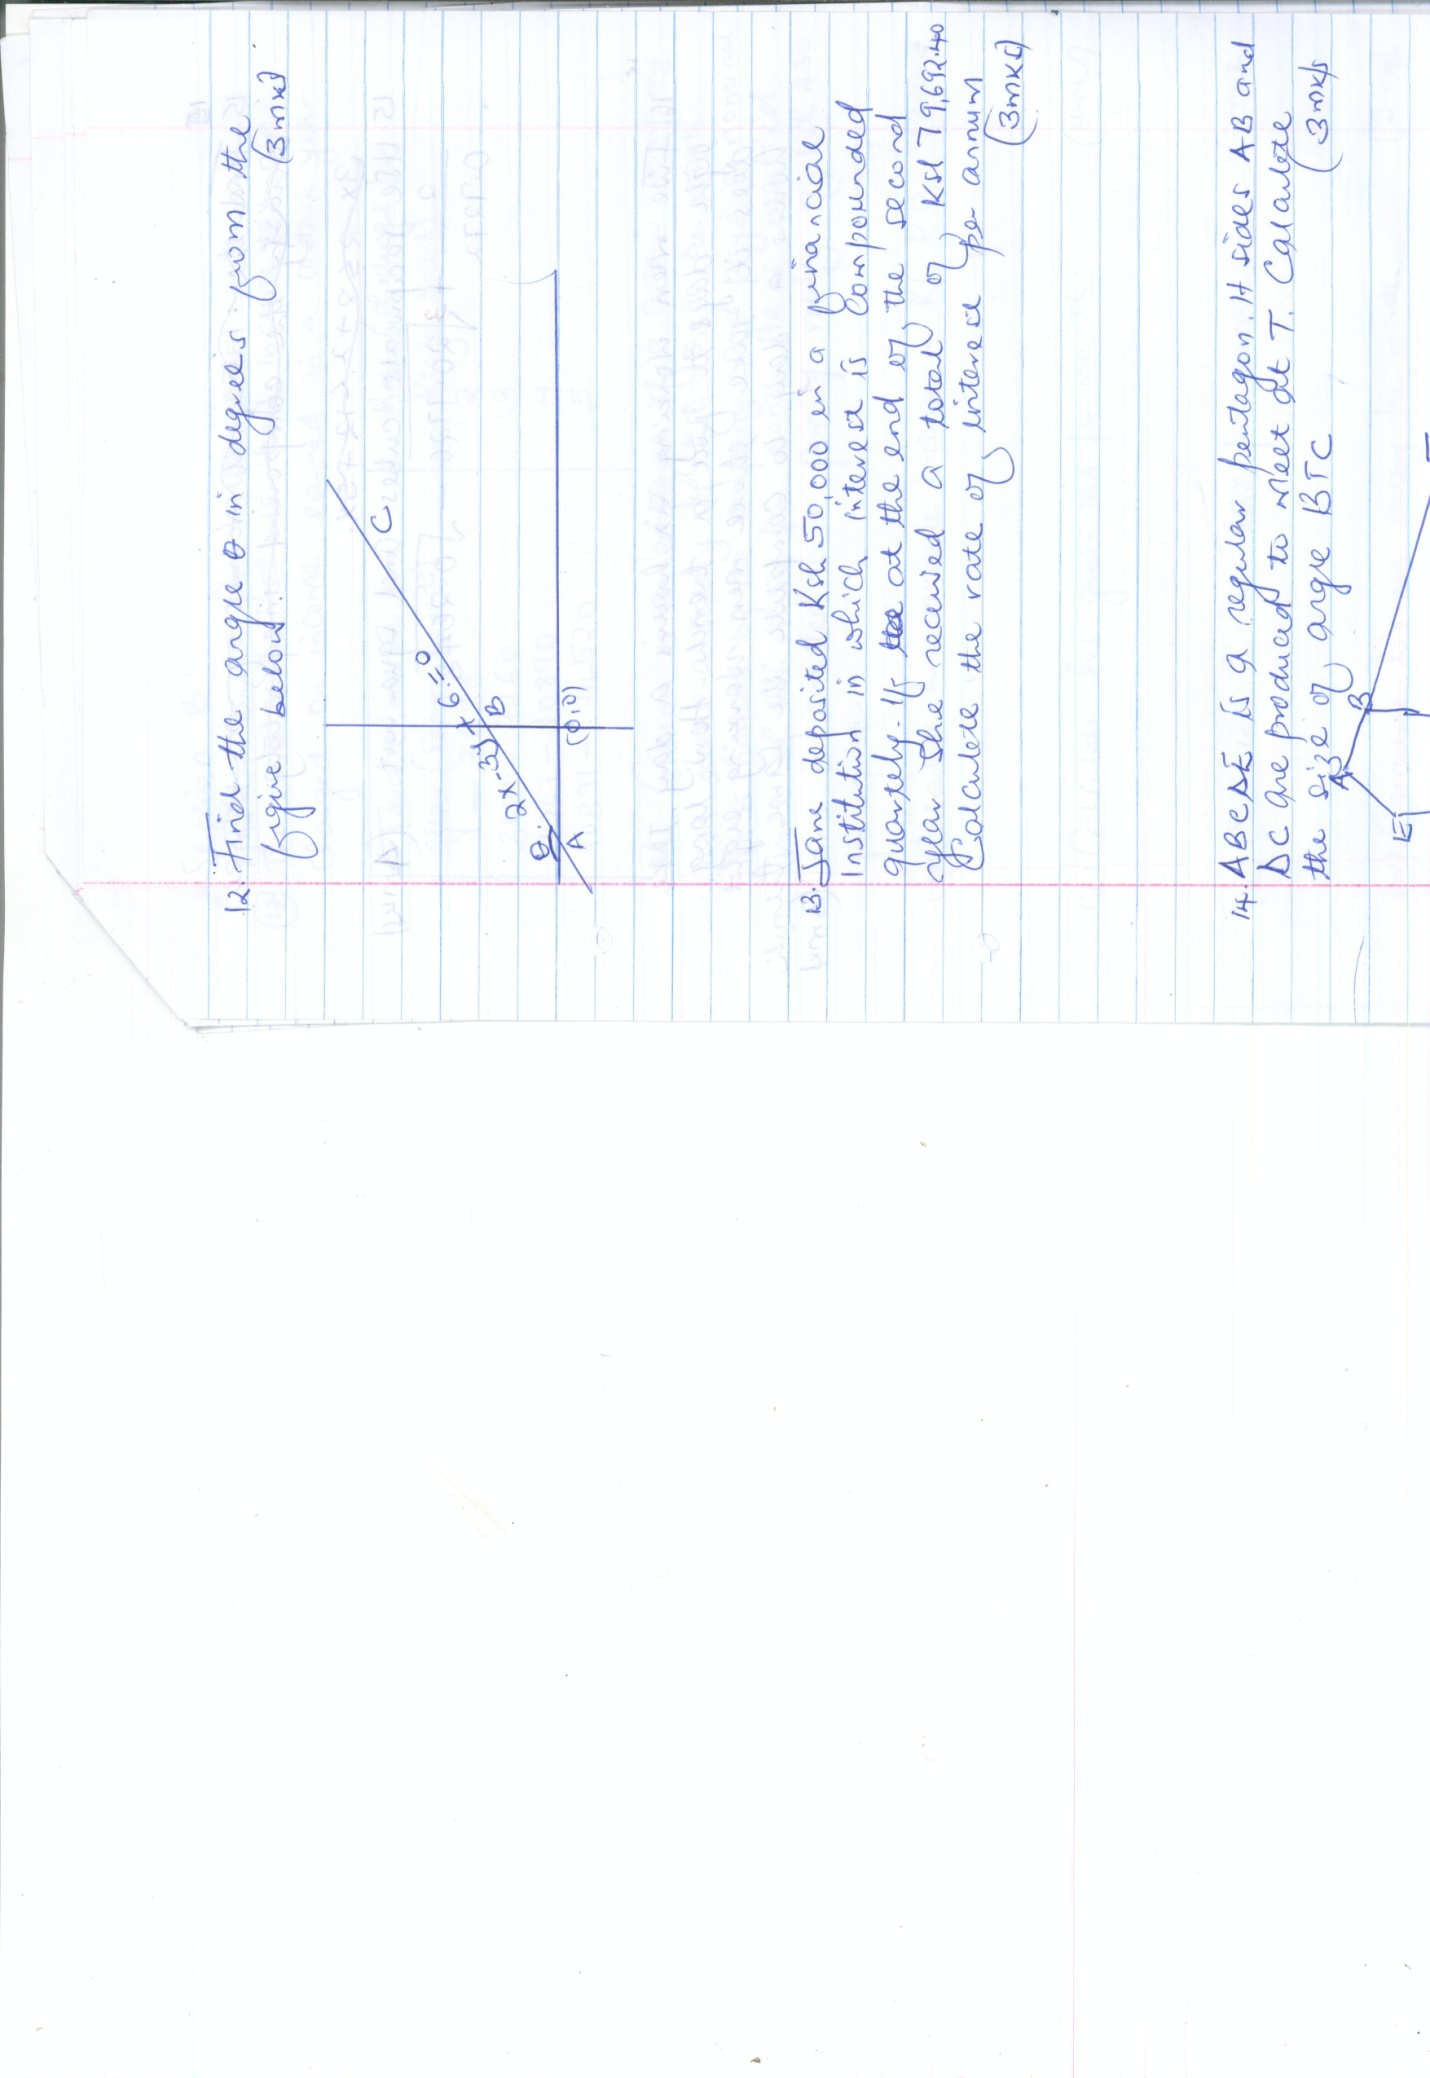 12. Find the angle θ in degrees from the
figure below. (3mks)
C
2x-3y+6=0
B
θ
A
(0,0)
13. Jane deposited Ksh 50,000 in a financial
institution in which interest is compounded
quarterly. If at the end of the second
year she received a total of Ksh 79,692.40
Calculate the rate of interest per annum
(3mks)
14. ABCDE is a regular pentagon. If sides AB and
DC are produced to meet at T. Calculate
the size of angle BTC (3mks
A
B
E